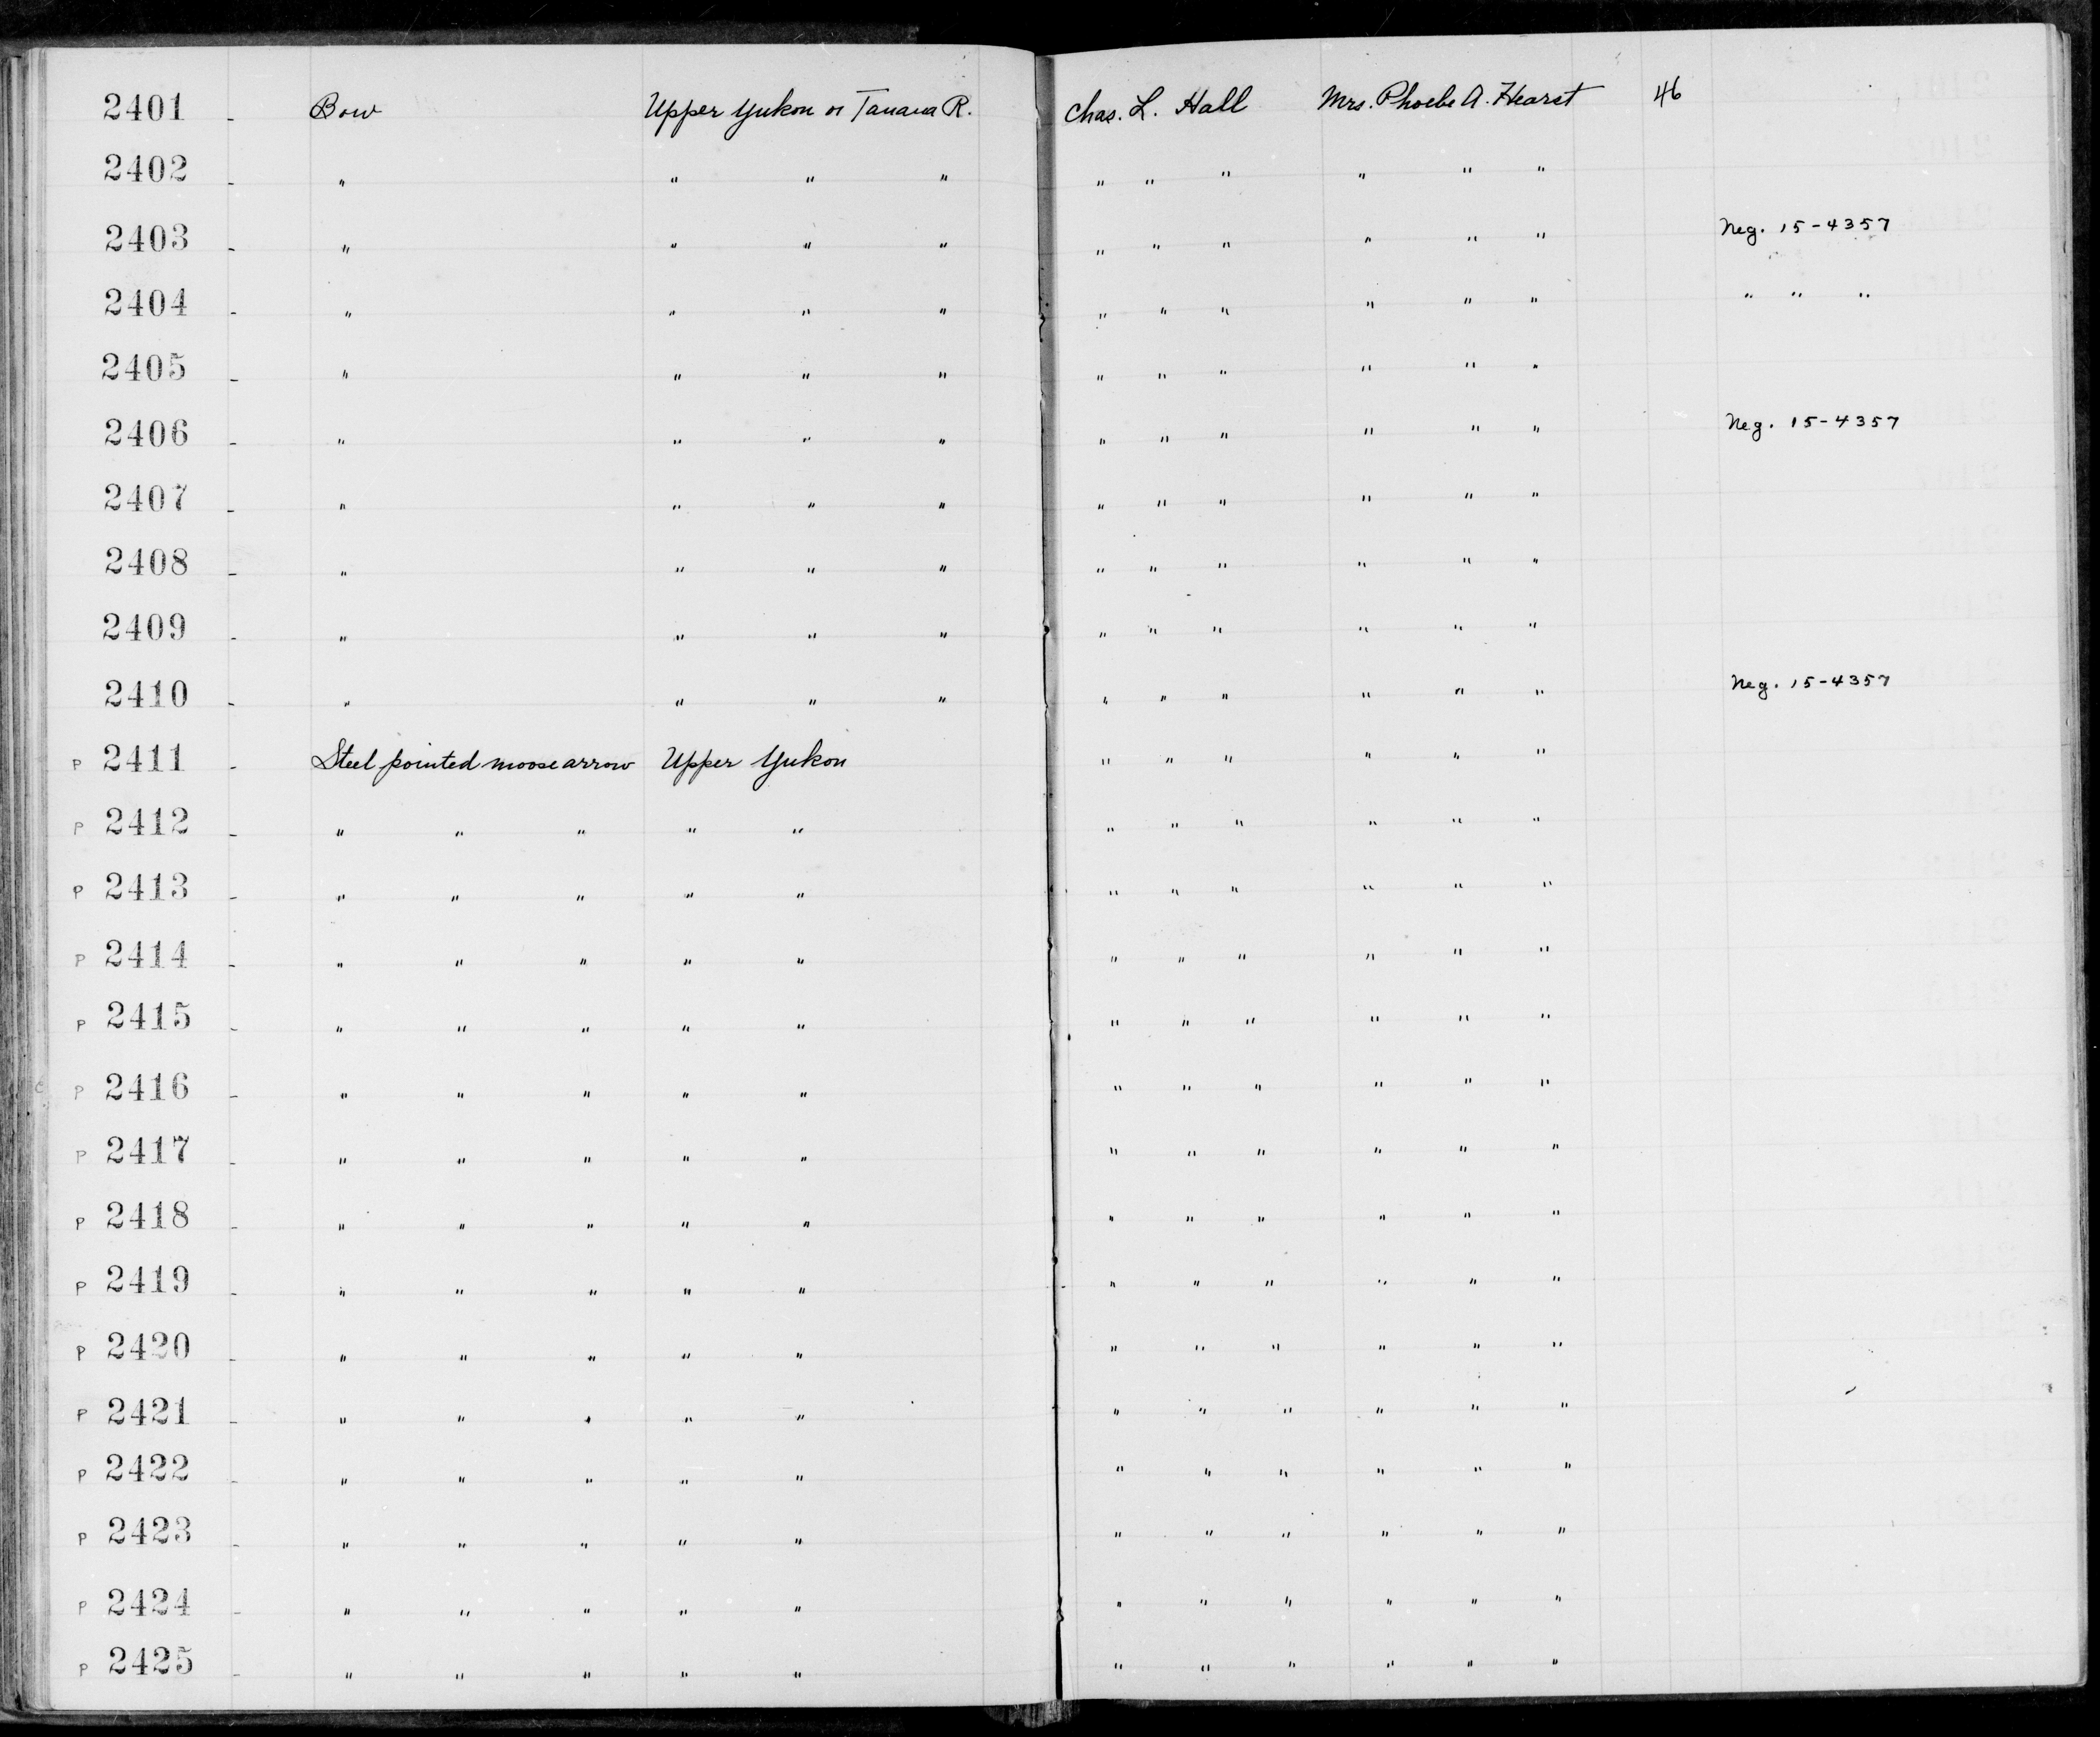 2401 - Bow Upper Yukon or Tanana R. Chas. L. Hall Mrs. Phoebe A. Hearst 46
2402 - " " " " " " " " " "
2403 - " " " " " " " " " " Neg. 15-4357
2404 - " " " " " " " " " " " " "
2405 - " " " " " " " " " "
2406 - " " " " " " " " " " Neg. 15-4357
2407 - " " " " " " " " " "
2408 - " " " " " " " " " "
2409 - " " " " " " " " " "
2410 - " " " " " " " " " " Neg. 15-4357
P 2411 - Steel pointed moose arrow Upper Yukon " " " " " "
P 2412 - " " " " " " " " " " "
P 2413 - " " " " " " " " " " "
P 2414 - " " " " " " " " " " "
P 2415 - " " " " " " " " " " "
P 2416 - " " " " " " " " " " "
P 2417 - " " " " " " " " " " "
P 2418 - " " " " " " " " " " "
P 2419 - " " " " " " " " " " "
P 2420 - " " " " " " " " " " "
P 2421 - " " " " " " " " " " "
P 2422 - " " " " " " " " " " "
P 2423 - " " " " " " " " " " "
P 2424 - " " " " " " " " " " "
P 2425 - " " " " " " " " " " "